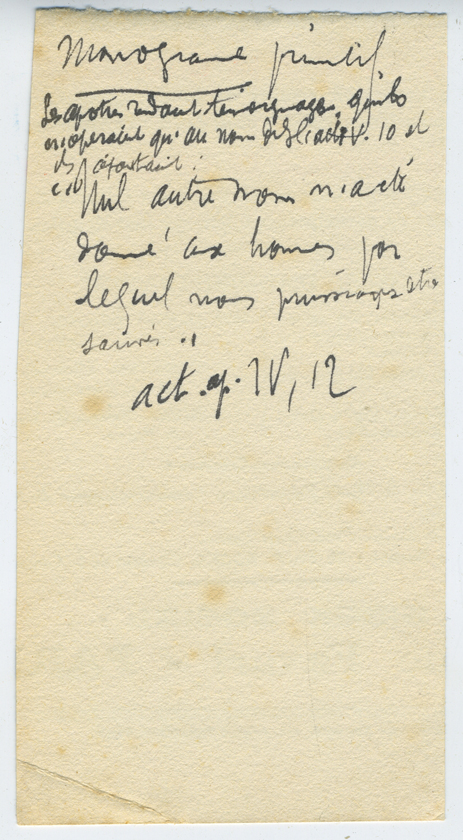 Monograme primitif
Les apotres rendant temoignages qu'ils
n'operaient qu'au nom de act V. 10 et
ils ajoutaient :
Nul autre nom n'a été
donné aux homes par
lequel nous puissions etre
sauvés .
act. ap. IV, 12